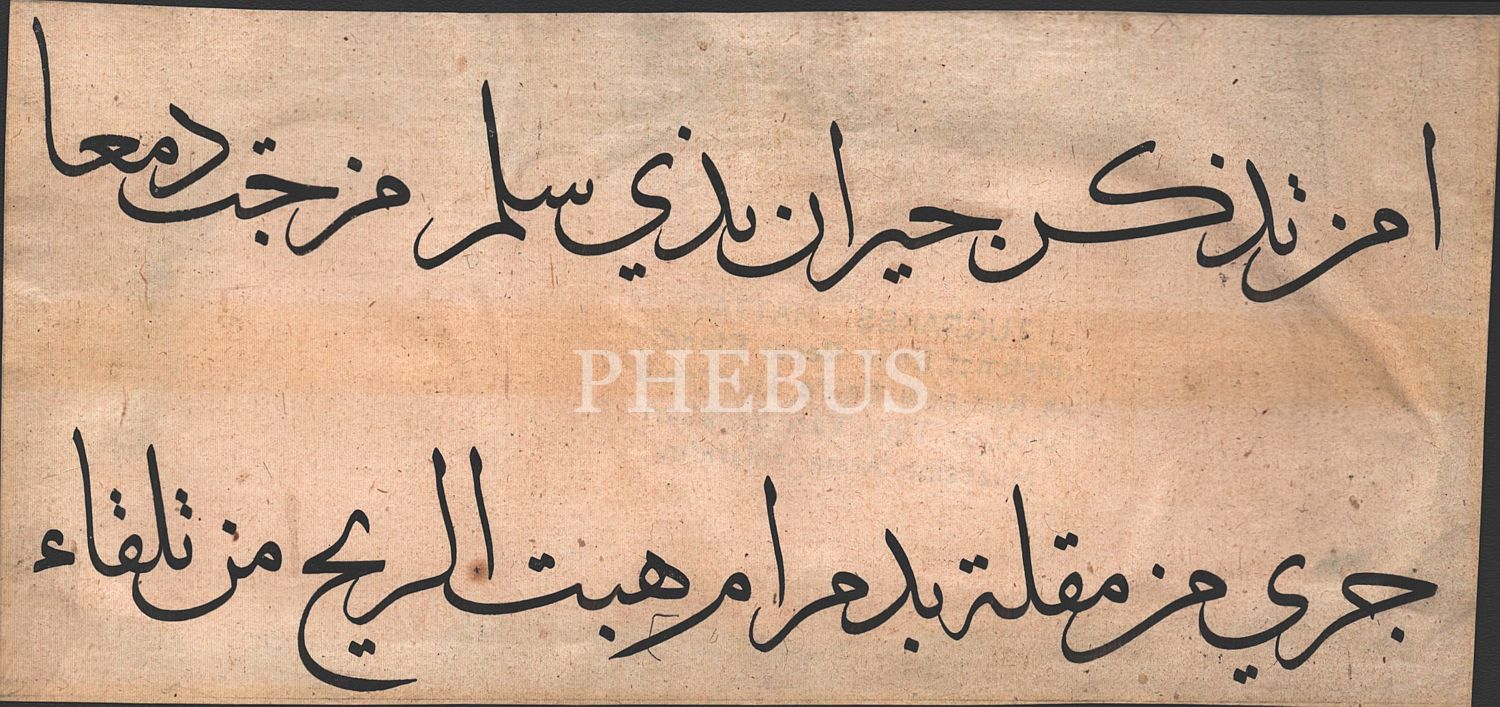 امن تذكر جيران بذي سلم مزجت دمعا
PHEBUS
جري من مقلة بدم ام هبت الريح من تلقاء